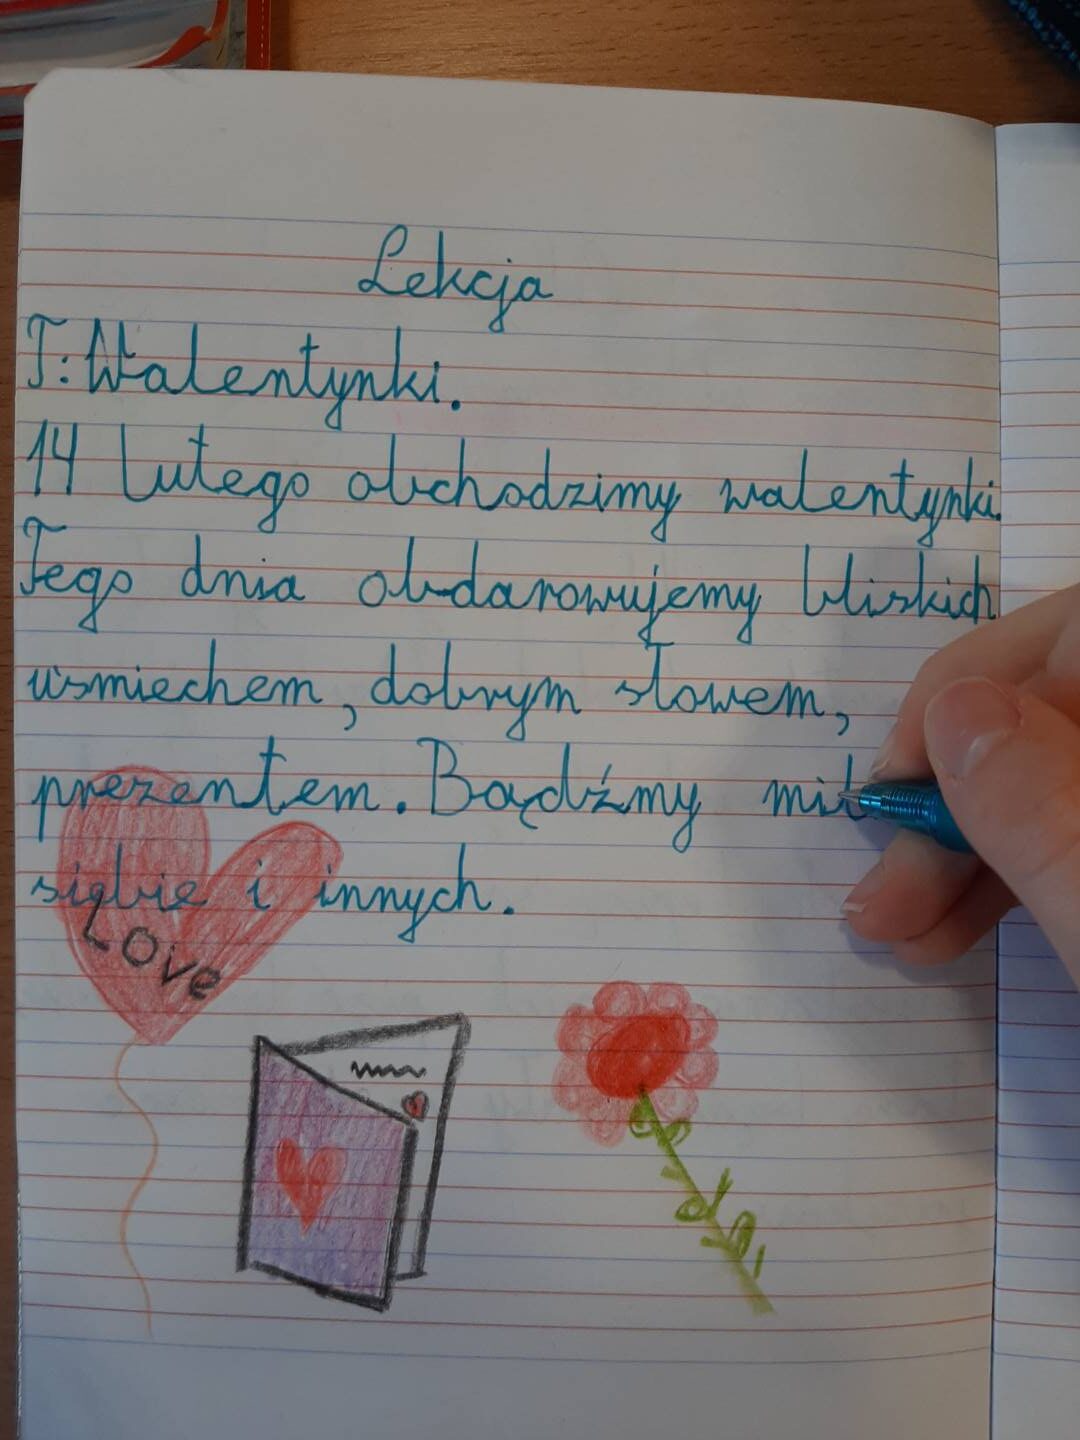 Lekcja
T: Walentynki.
14 lutego obchodzimy walentynki.
Tego dnia obdarowujemy bliskich
uśmiechem, dobrym słowem,
prezentem. Bądźmy
siębie i innych.
Love